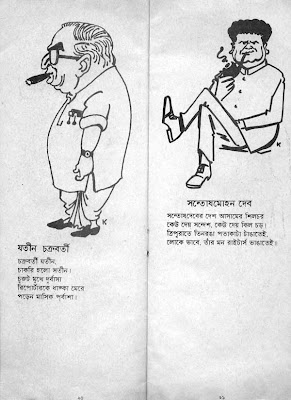 যতীন চক্রবর্তী
চক্রবর্তী যতীন,
চাকরি হলো সতীন।
চুরুট মুখে দুর্বাসা
রিপোর্টারকে ধাক্কা মেরে
পড়েন মাসিক পূর্বাশা।
সন্তোষমোহন দেব
সন্তোষদেবের দেশ আসামের শিলচর
কেউ দেয় সন্দেশ, কেউ দেয় কিল চড়।
ত্রিপুরাতে তিনরঙা পতাকাটা টাঙাতেই,
লোকে ভাবে, তাঁর মন রাইটার্স ভাঙাতেই।
K
K